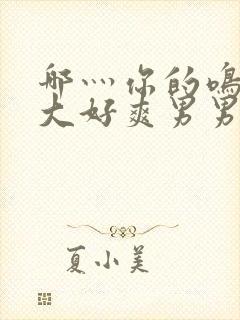 那灬你的鳴
大好爽男男
夏小美